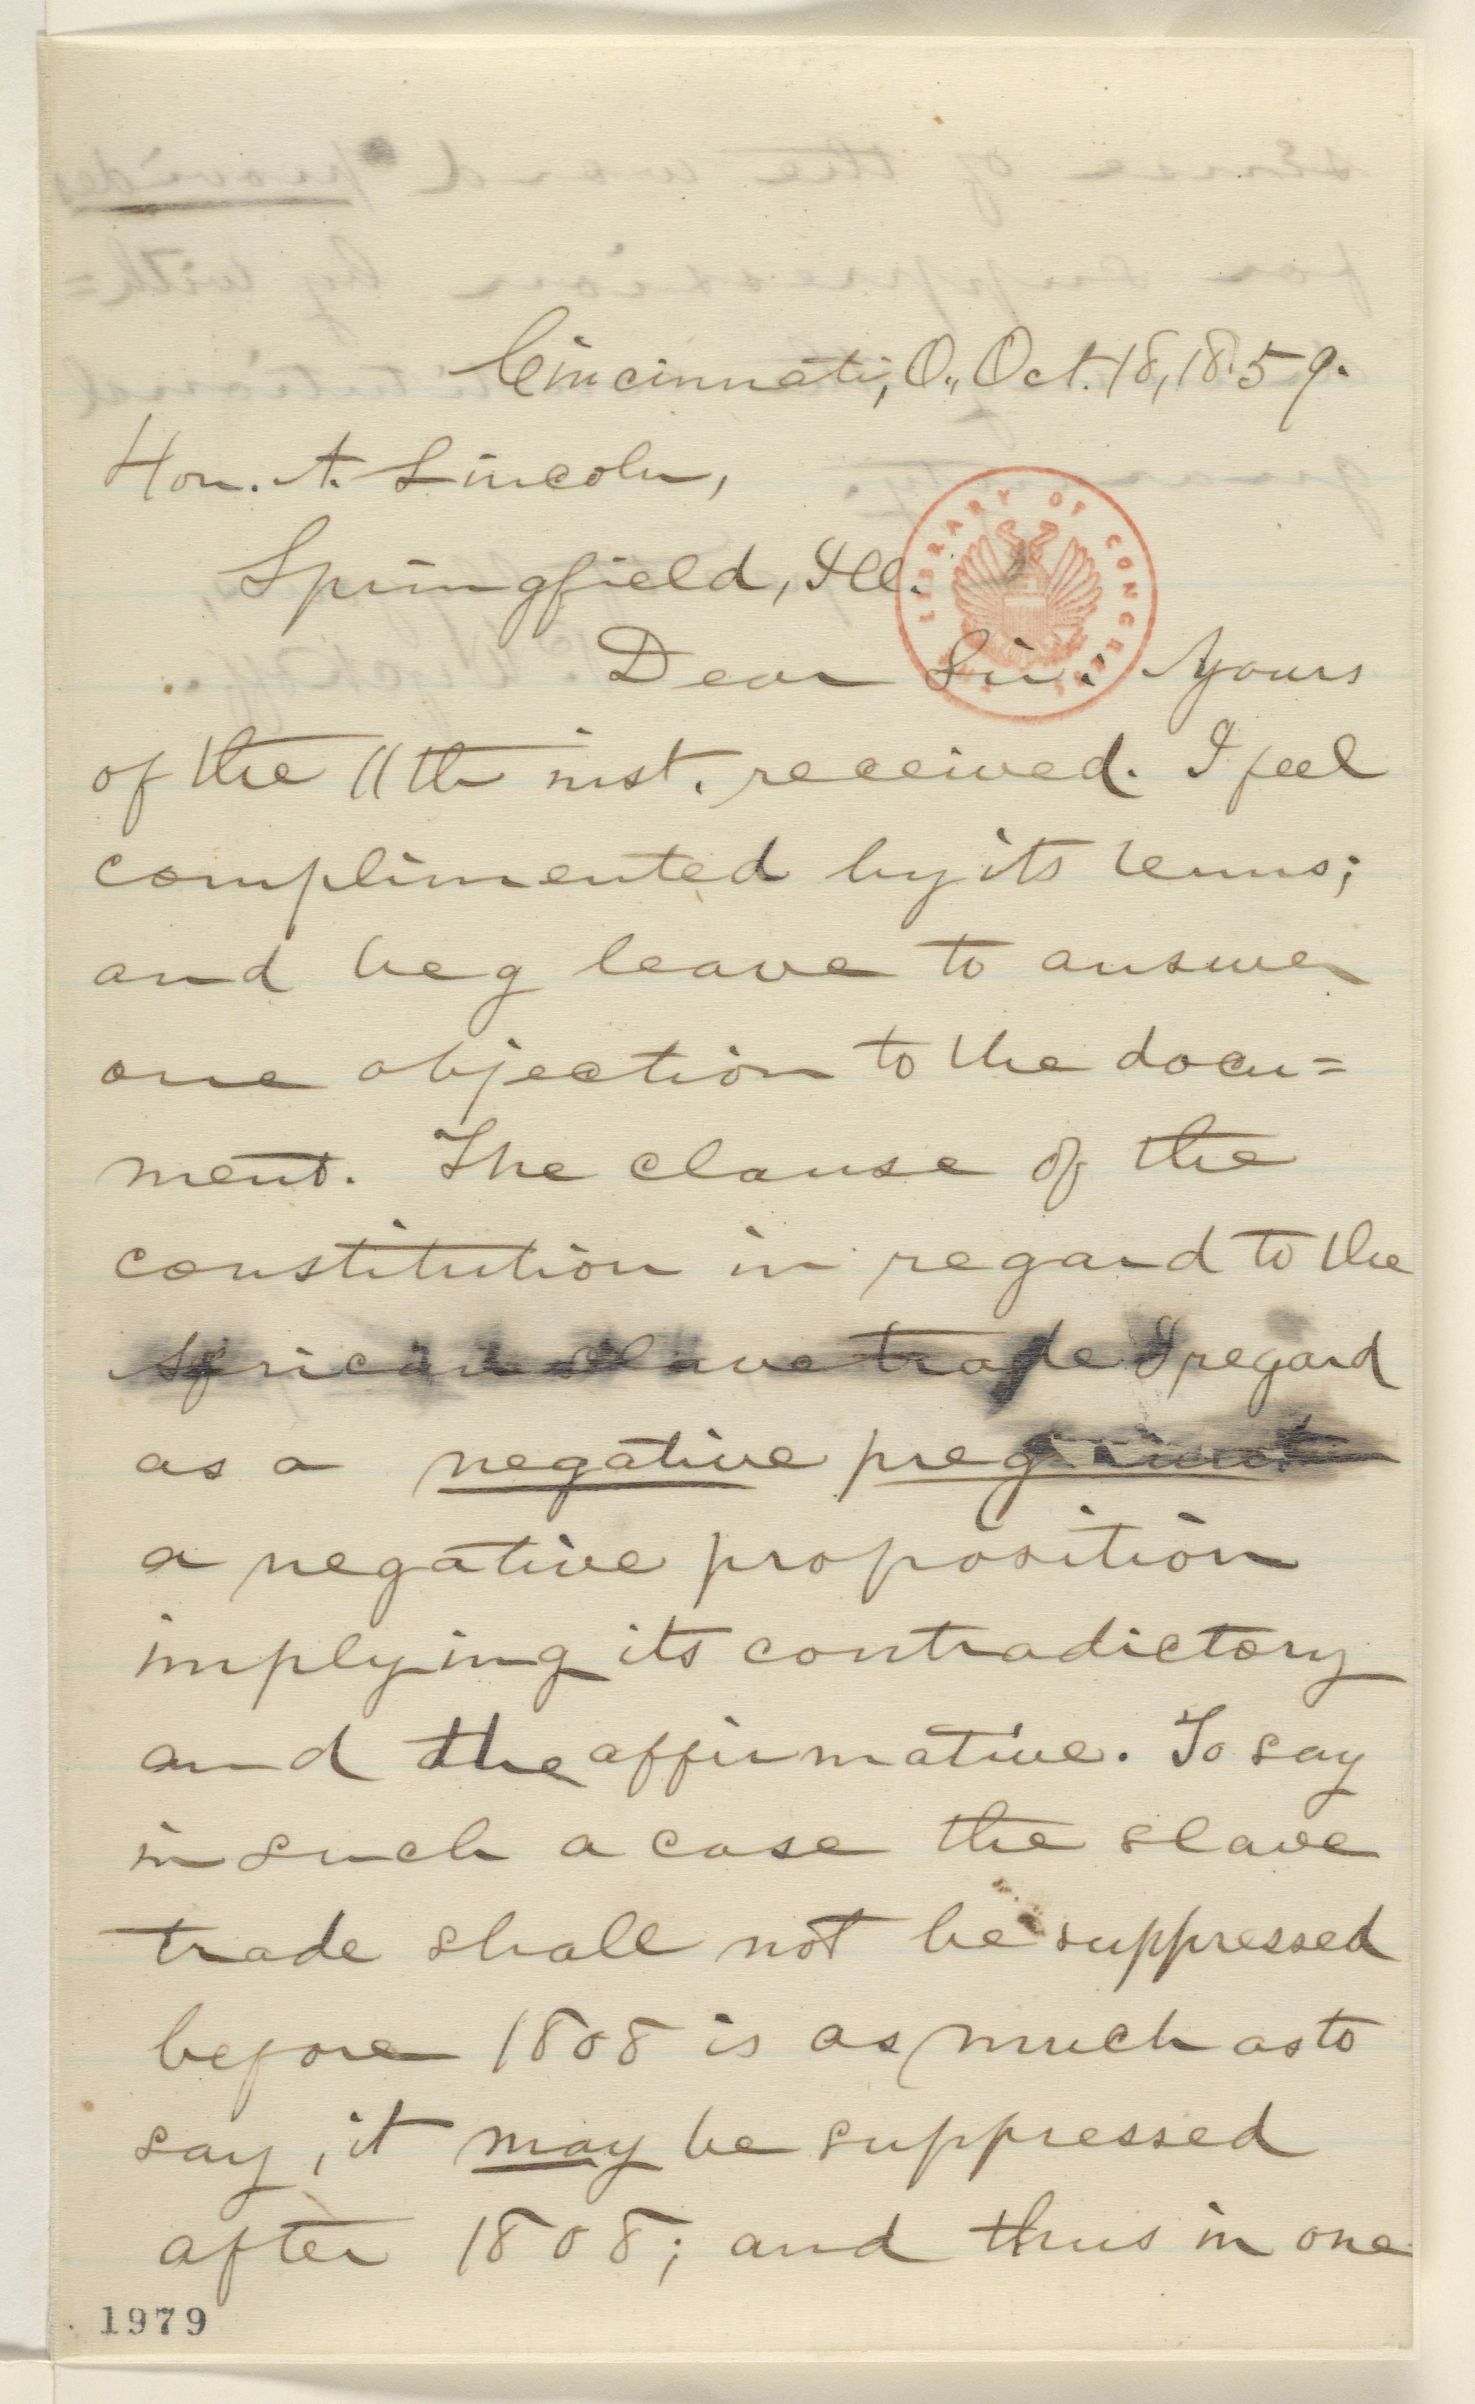 Cincinnati, O., Oct. 18, 1859.
Hon. A. Lincoln,
Springfield, Ill.
LIBRARY OF CONGRESS
Dear Sir: Yours
of the 11th inst. received. I feel
complimented by its terms;
and beg leave to answer
one objection to the docu=
ment. The clause of the
constitution in regard to the
African slave trade I regard
as a negative pregnant
a negative proposition
implying its contradictory
and the affirmative. To say
in such a case the slave
trade shall not be suppressed
before 1808 is as much as to
say, it may be suppressed
after 1808; and thus in one
1979